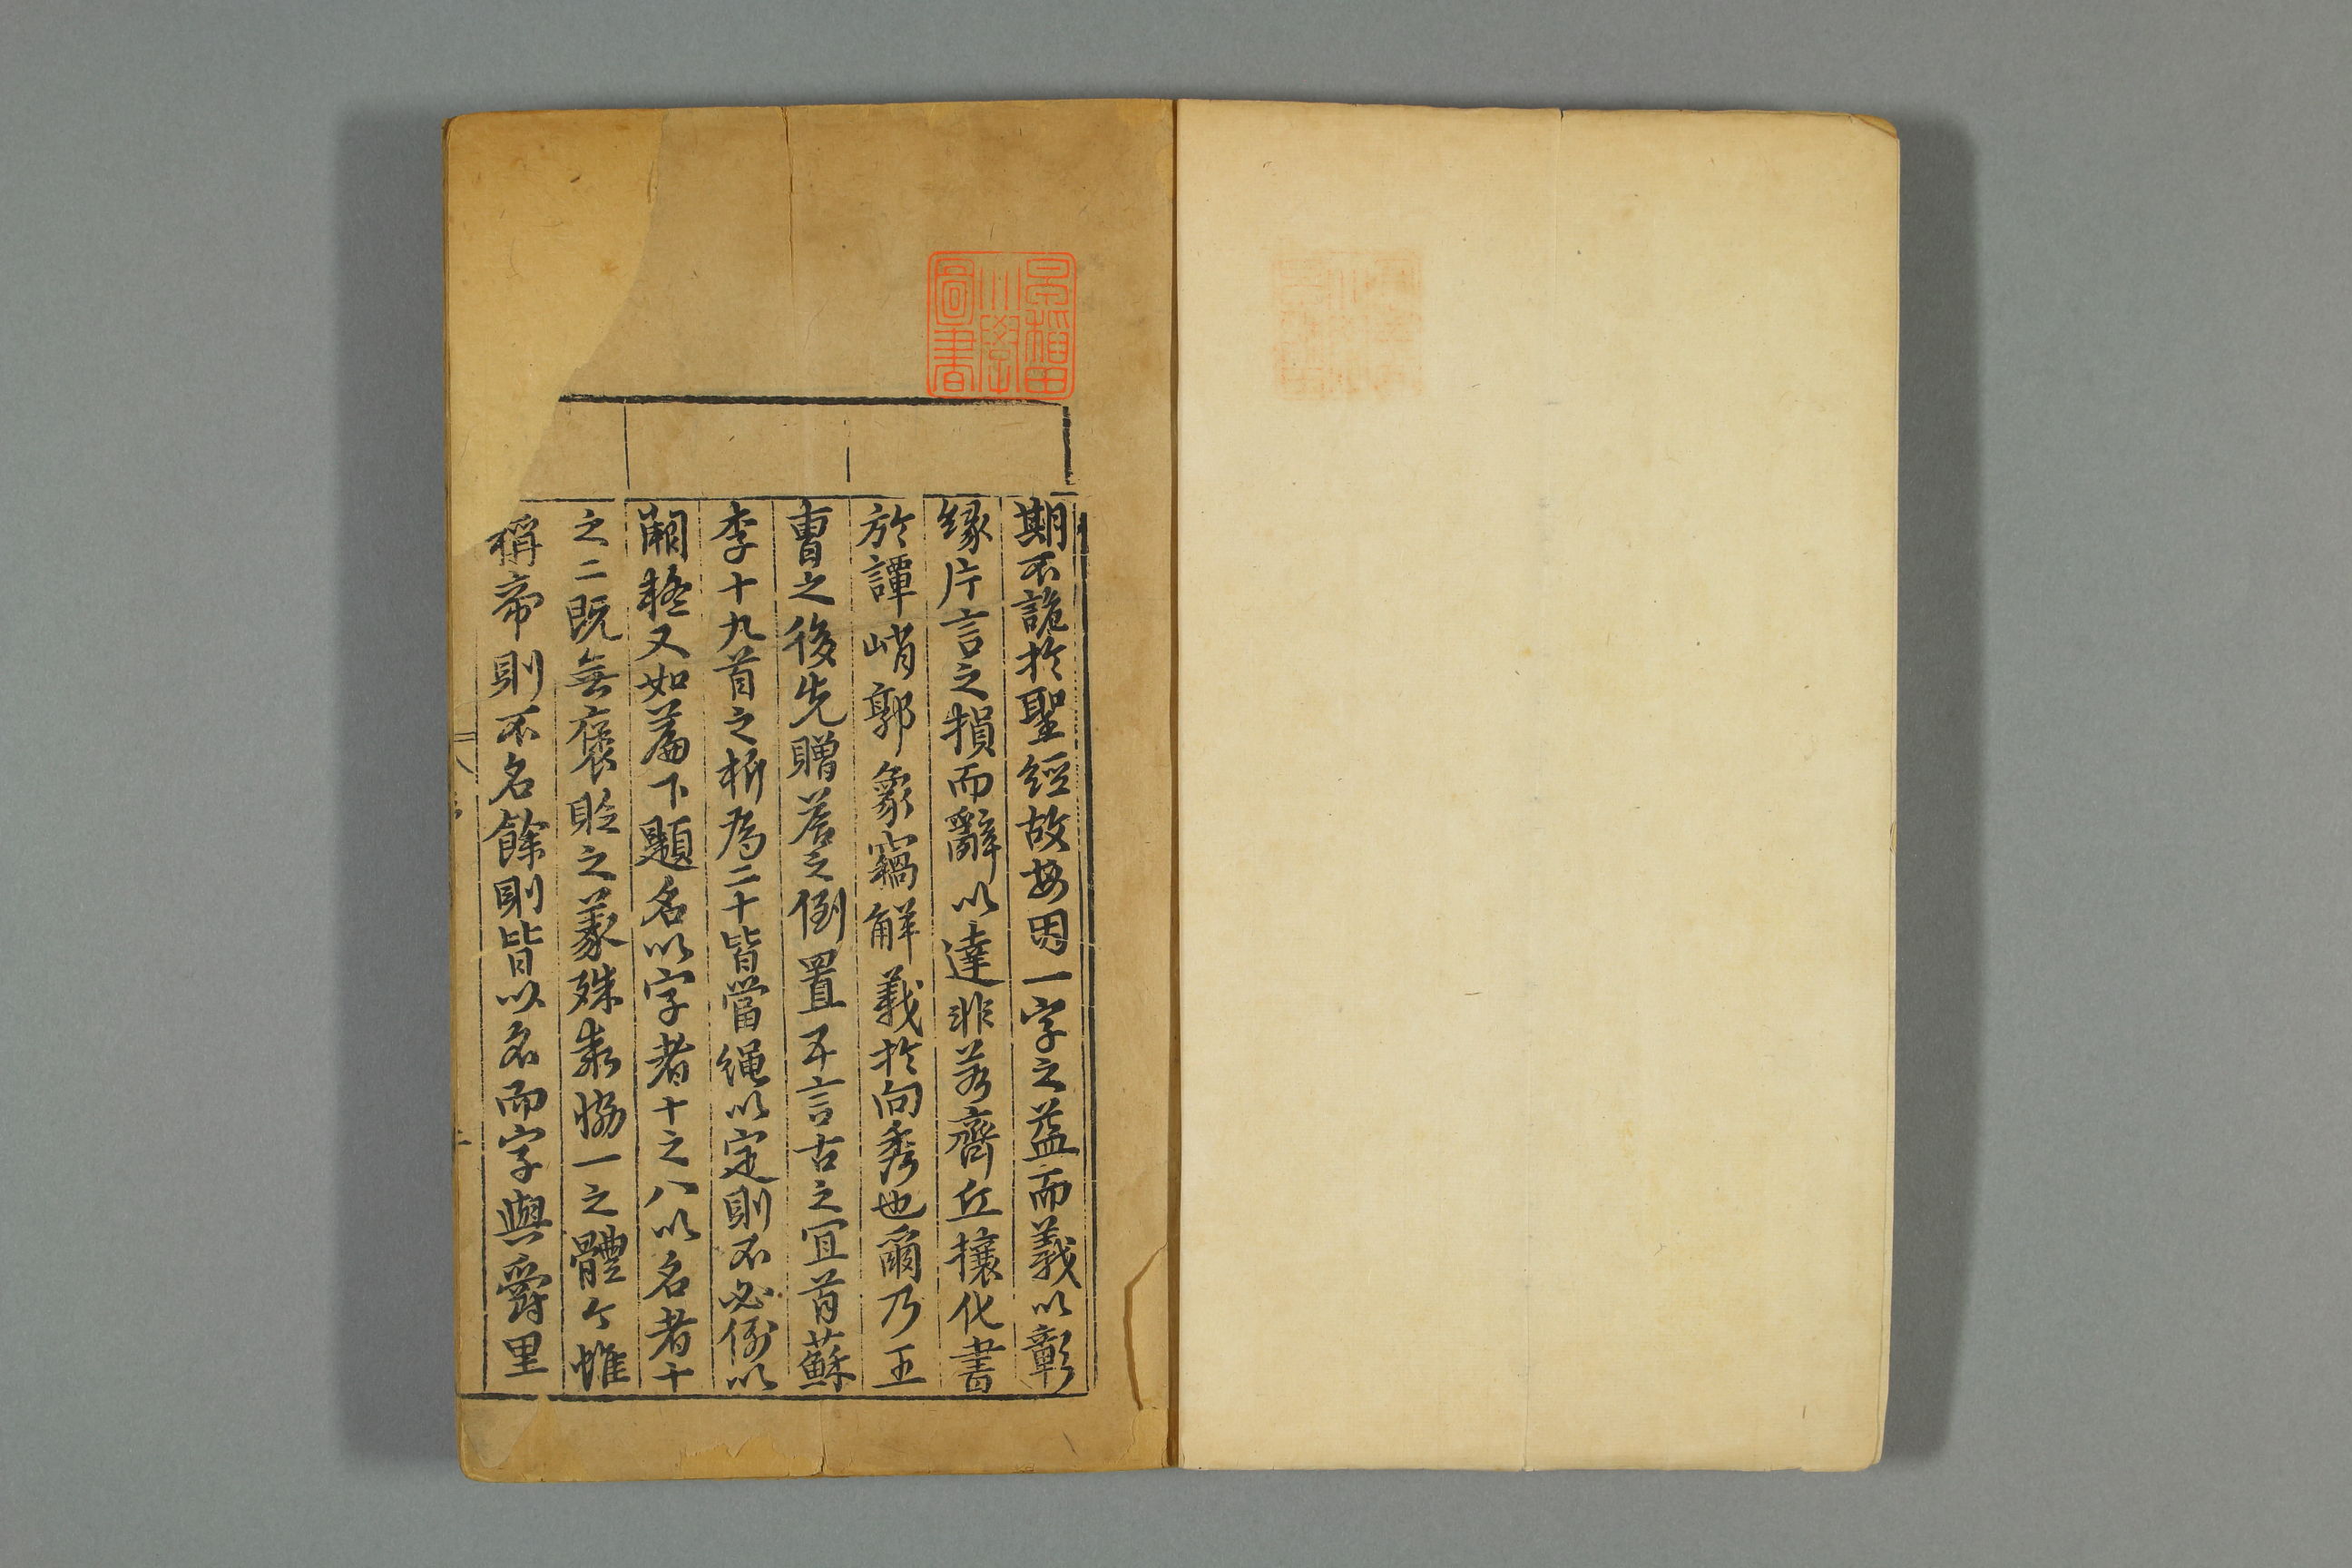 早稲田
大學
圖書
期不詭於聖經故每因一字之益而義以彰
緣片言之損而辭以達非若齊丘攘化書
於譚峭郭象竊解義於向秀也爾乃王
曹之後先贈荅之倒置子言古之冝首蘇
李十九首之析為二十皆當繩以定則不必例以
闕疑又如篇下題名以字者十之八以名者十
之二既無褒貶之義殊乖協一之體今惟
稱帝則不名餘則皆以名而字與爵里